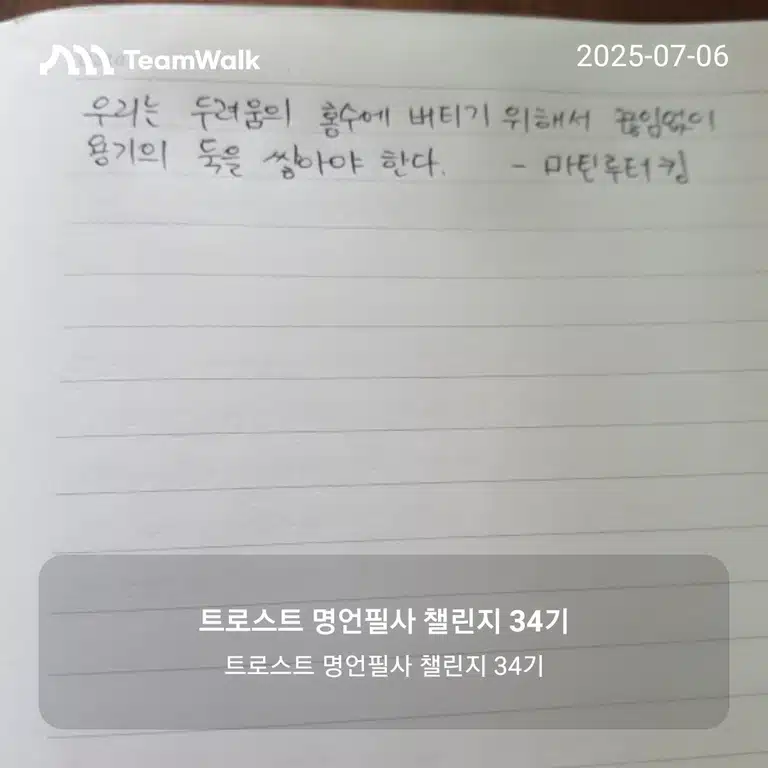 TeamWalk
2025-07-06
우리는 두려움의 홍수에 버티기 위해서 끊임없이
용기의 둑을 쌓아야 한다. - 마틴루터킹
트로스트 명언필사 챌린지 34기
트로스트 명언필사 챌린지 34기